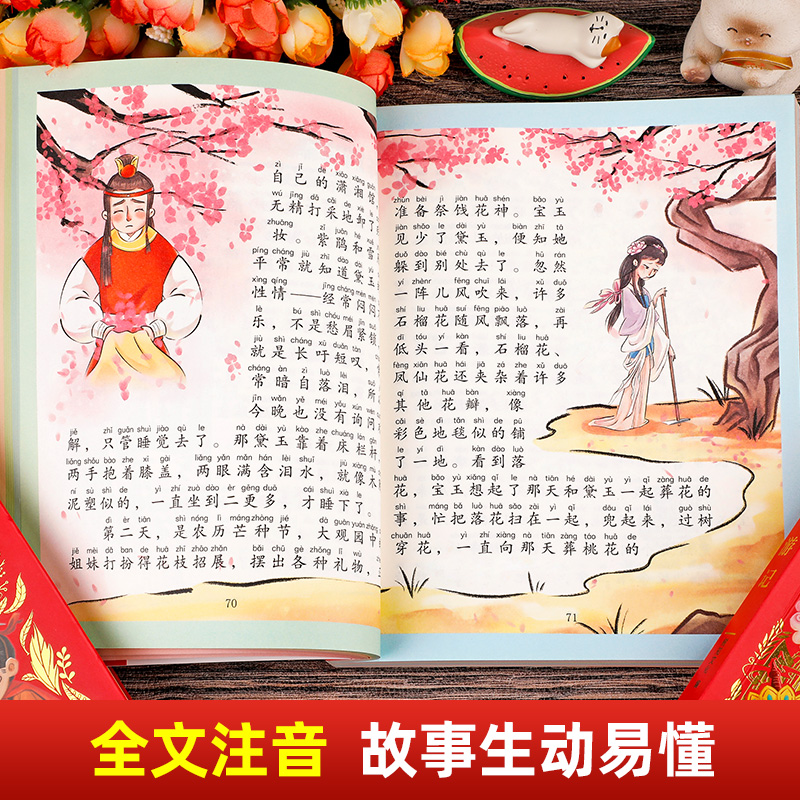 zì jǐ de xiāo xiāng guǎn
自己的潇湘馆
wú jīng dǎ cǎi de xiè le
无精打采地卸了
zhuāng zǐ juān hé xuě
妆。紫鹃和雪
píng cháng jiù zhī dào dài yù
平常就知道黛玉
xìng qíng jīng cháng mèn mèn
性情——经常闷闷
lè bú shì chóu méi jǐn suǒ
乐，不是愁眉紧锁
jiù shì cháng xū duǎn tàn
就是长吁短叹，
cháng àn zì luò lèi suǒ
常暗自落泪，所
jīn wǎn yě méi yǒu xún wèn
今晚也没有询问
jiě zhǐ guǎn shuì jiào qù le nà dài yù kào zhe chuáng lán gān
解，只管睡觉去了。那黛玉靠着床栏杆
liǎng shǒu bào zhe xī gài liǎng yǎn mǎn hán lèi shuǐ jiù xiàng mù
两手抱着膝盖，两眼满含泪水，就像木
ní sù shì de yì zhí zuò dào èr gēng duō cái shuì xià le
泥塑似的，一直坐到二更多，才睡下了。
dì èr tiān shì nóng lì máng zhòng jié dà guān yuán zhōng
第二天，是农历芒种节，大观园中
jiě mèi dǎ ban de huā zhī zhāo zhǎn bǎi chū gè zhǒng lǐ wù
姐妹打扮得花枝招展，摆出各种礼物，
70
zhǔn bèi jì jiàn huā shén bǎo yù
准备祭饯花神。宝玉
jiàn shǎo le dài yù biàn zhī tā
见少了黛玉，便知她
duǒ dào bié chù qù le hū rán
躲到别处去了。忽然
yí zhènr fēng chuī lái xǔ duō
一阵儿风吹来，许多
shí liu huā suí fēng piāo luò zài
石榴花随风飘落，再
dī tóu yí kàn shí liu huā
低头一看，石榴花、
fèng xiān huā hái jiā zá zhe xǔ duō
凤仙花还夹杂着许多
qí tā huā bàn xiàng
其他花瓣，像
cǎi sè dì tǎn shì de pū
彩色地毯似的铺
le yí dì kàn dào luò
了一地。看到落
huā bǎo yù xiǎng qǐ le nà tiān hé dài yù yì qǐ zàng huā de
花，宝玉想起了那天和黛玉一起葬花的
shì máng bǎ luò huā sǎo zài yì qǐ dōu qǐ lái guò shù
事，忙把落花扫在一起，兜起来，过树
chuān huā yì zhí xiàng nà tiān zàng táo huā de
穿花，一直向那天葬桃花的
71
游记
全文注音 故事生动易懂